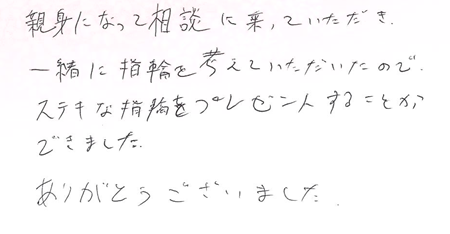 親身になって相談に乗っていただき、
一緒に指輪を考えていただいたので、
ステキな指輪をプレゼントすることが
できました。
ありがとうございました。